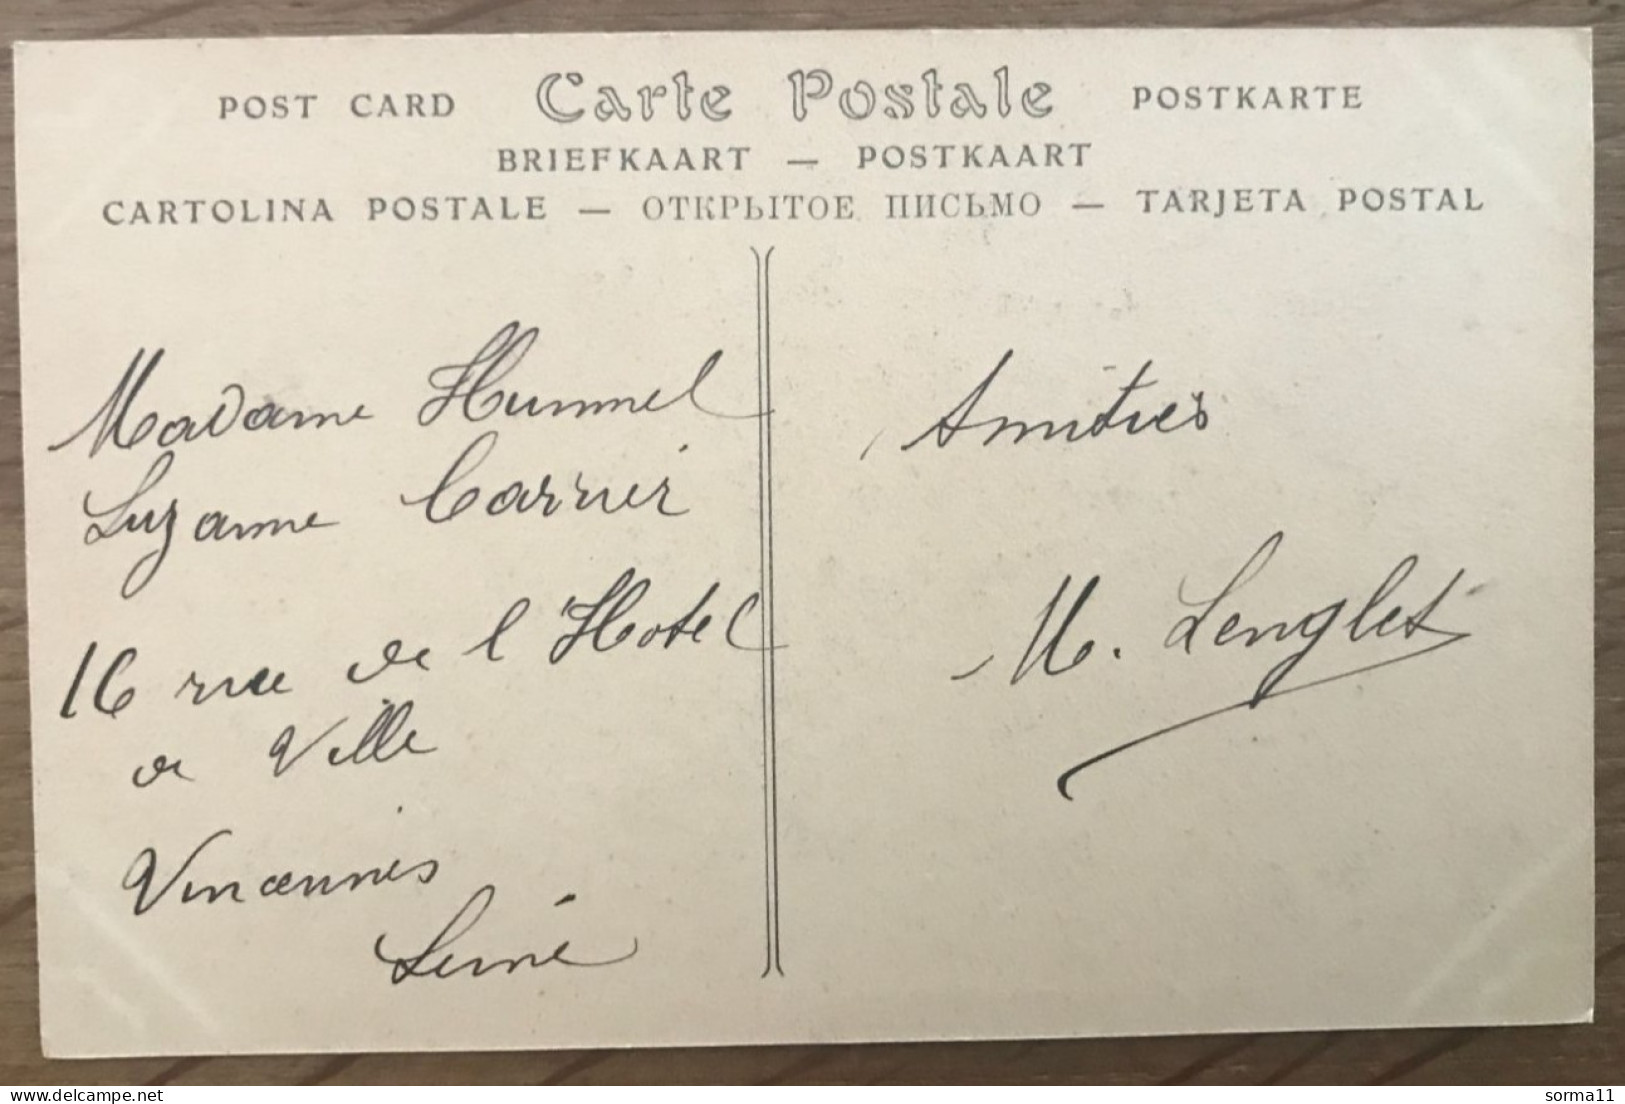 POST CARD Carte Postale POSTKARTE
BRIEFKAART — POSTKAART
CARTOLINA POSTALE — ОТКРЫТОЕ ПИСЬМО — TARJETA POSTAL
Madame Hummel
Suzanne Carrier
16 rue de l'Hotel
de Ville
Vincennes
Seine
Amitiés
M. Lenglet
delcampe.net
sorma11